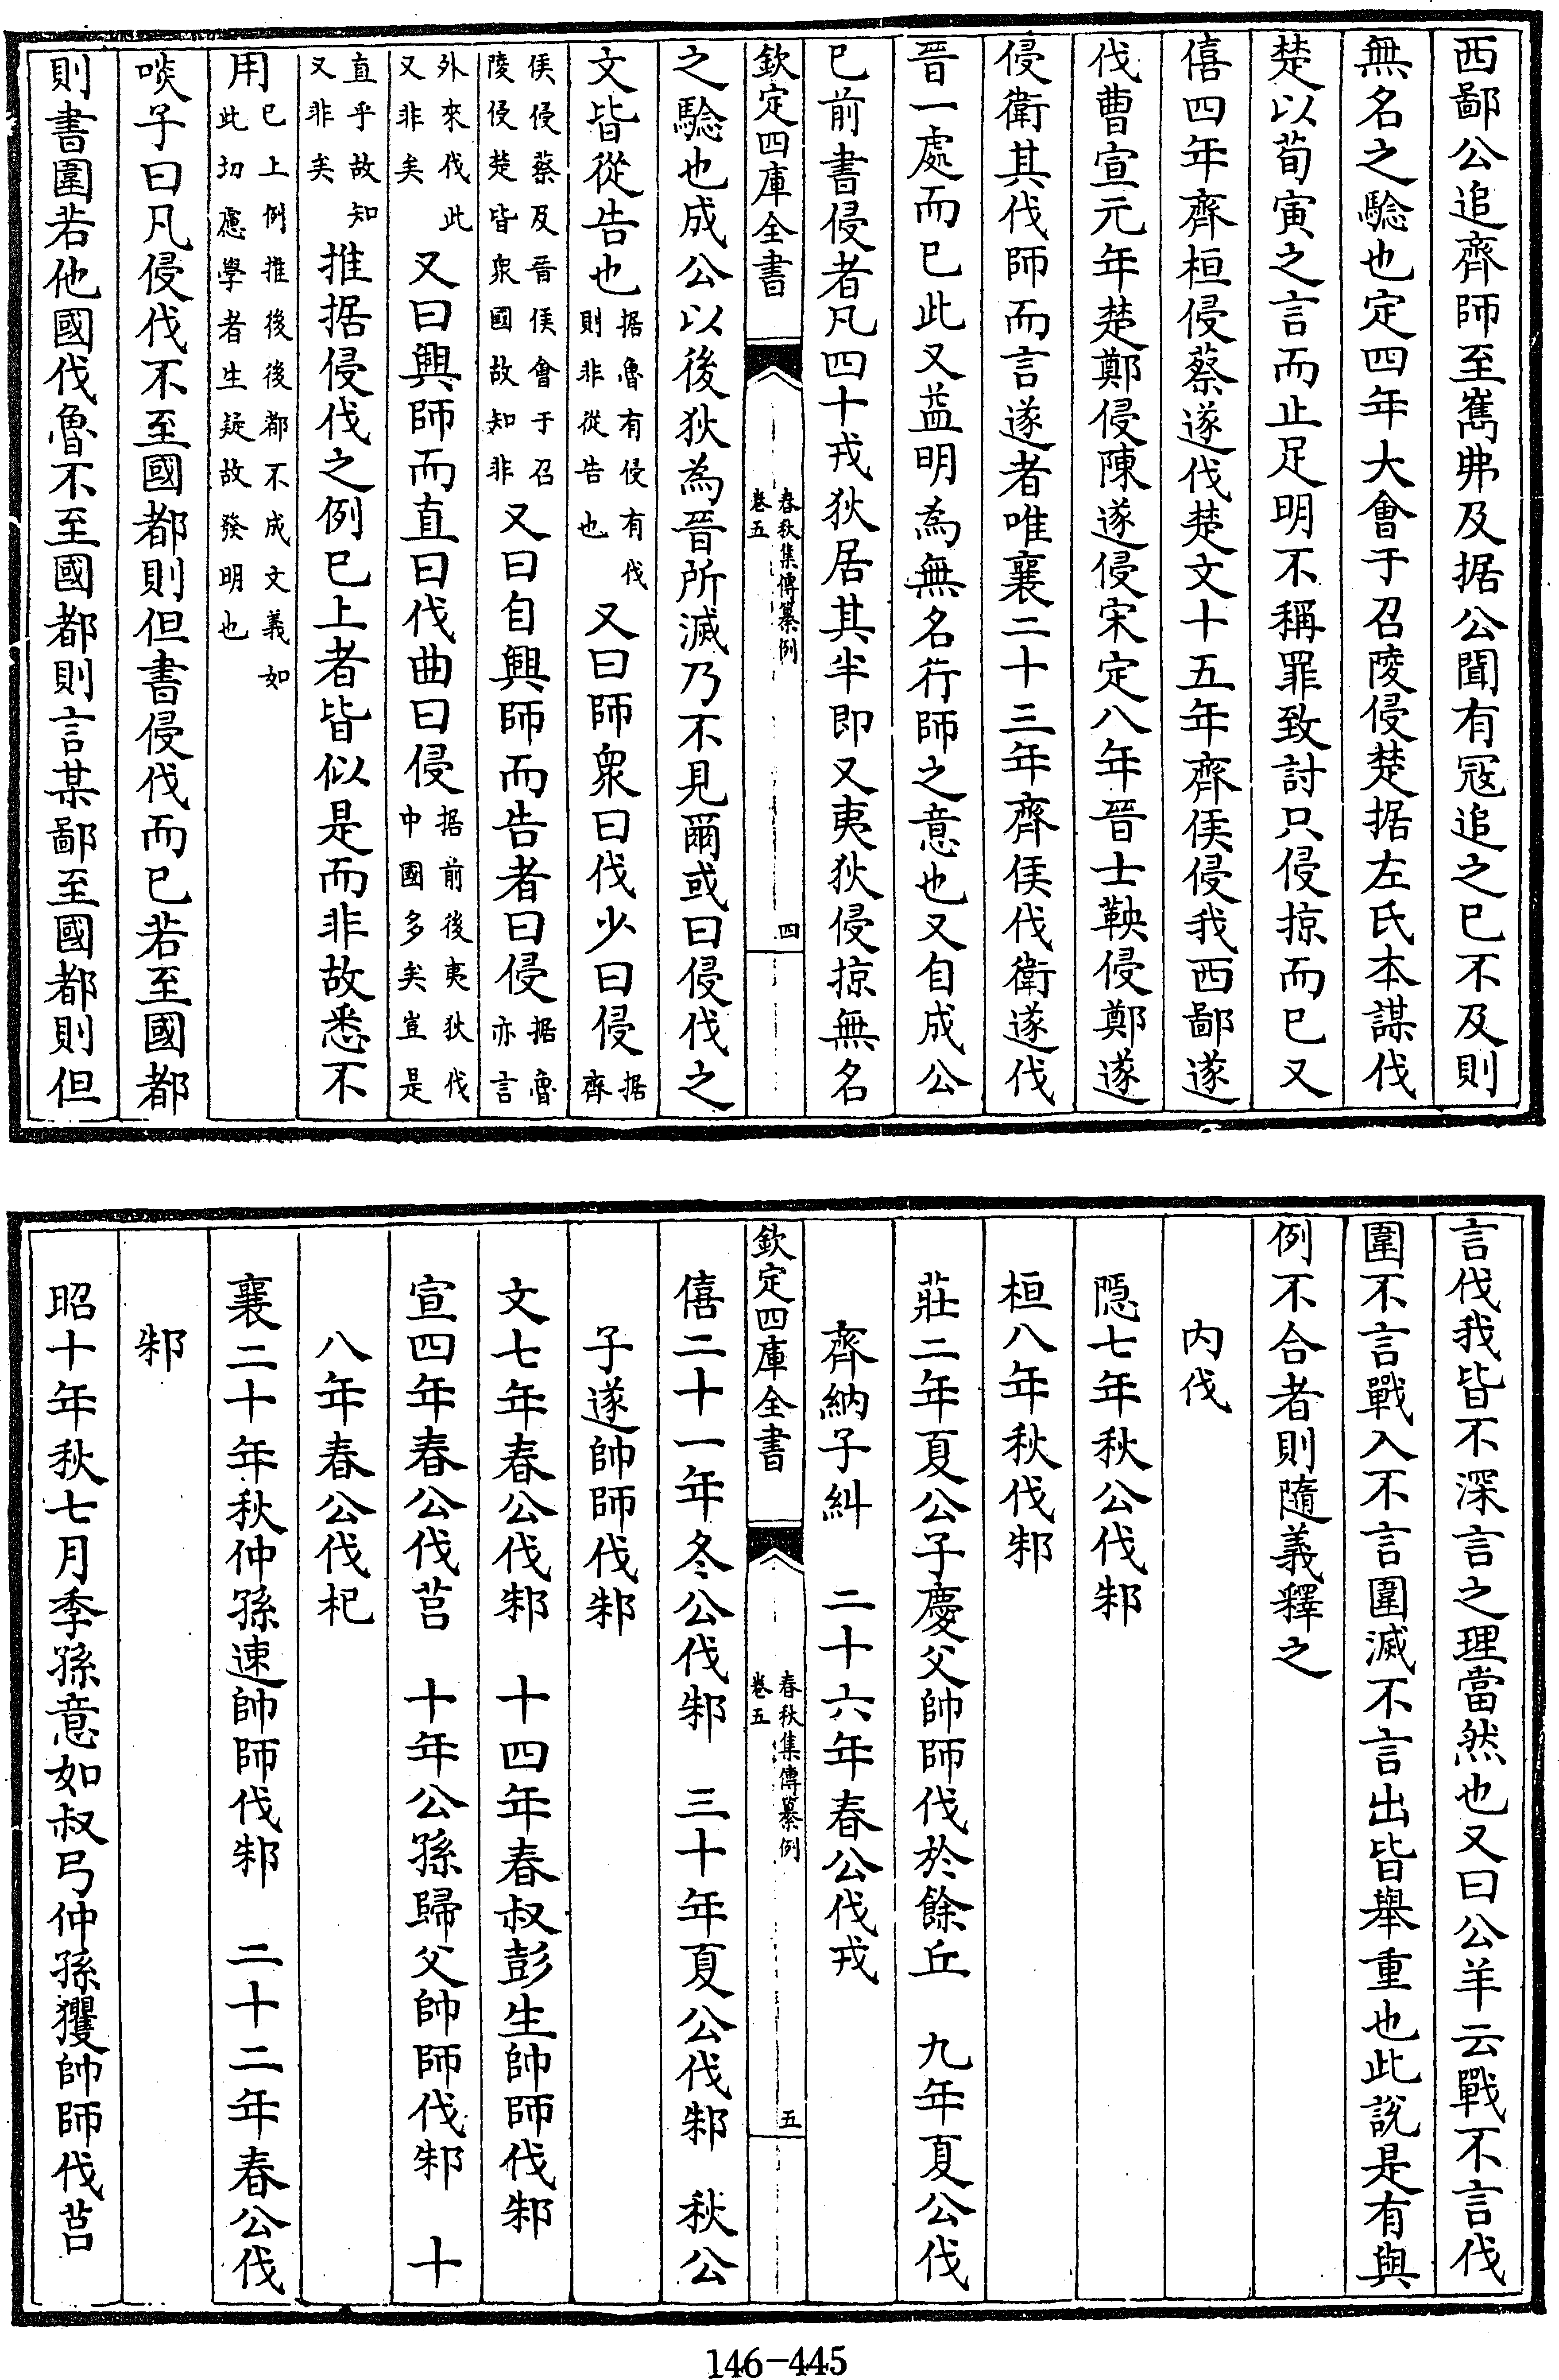 西鄙公追齊師至嶲弗及据公聞有冦追之已不及則
無名之騐也定四年大會于召陵侵楚据左氏本謀伐
楚以荀寅之言而止足明不稱罪致討只侵掠而已又
僖四年齊桓侵蔡遂伐楚文十五年齊侯侵我西鄙遂
伐曹宣元年楚鄭侵陳遂侵宋定八年晉士鞅侵鄭遂
侵衛其伐師而言遂者唯襄二十三年齊侯伐衛遂伐
晉一處而已此又益明為無名行師之意也又自成公
已前書侵者凡四十戎狄居其半即又夷狄侵掠無名
欽定四庫全書
春秋集傳纂例
卷五
四
之騐也成公以後狄為晉所滅乃不見爾或曰侵伐之
文皆從告也据魯有侵有伐則非從告也又曰師衆曰伐少曰侵据齊
侯侵蔡及晉侯會于召陵侵楚皆衆國故知非又曰自興師而告者曰侵据魯亦言
外來伐此又非矣又曰興師而直曰伐曲曰侵据前後夷狄伐中國多矣豈是
直乎故知又非矣推据侵伐之例已上者皆似是而非故悉不
用已上例推後後都不成文義如此切慮學者生疑故發明也
啖子曰凡侵伐不至國都則但書侵伐而已若至國都
則書圍若他國伐魯不至國都則言某鄙至國都則但
言伐我皆不深言之理當然也又曰公羊云戰不言伐
圍不言戰入不言圍滅不言出皆舉重也此說是有與
例不合者則隨義釋之
內伐
隠七年秋公伐邾
桓八年秋伐邾
莊二年夏公子慶父帥師伐於餘丘　九年夏公伐
齊納子糾　二十六年春公伐戎
欽定四庫全書
春秋集傳纂例
卷五
五
僖二十一年冬公伐邾　三十年夏公伐邾　秋公
子遂帥師伐邾
文七年春公伐邾　十四年春叔彭生帥師伐邾
宣四年春公伐莒　十年公孫歸父帥師伐邾　十
八年春公伐杞
襄二十年秋仲孫速帥師伐邾　二十二年春公伐
邾
昭十年秋七月季孫意如叔弓仲孫貜帥師伐莒
146-445